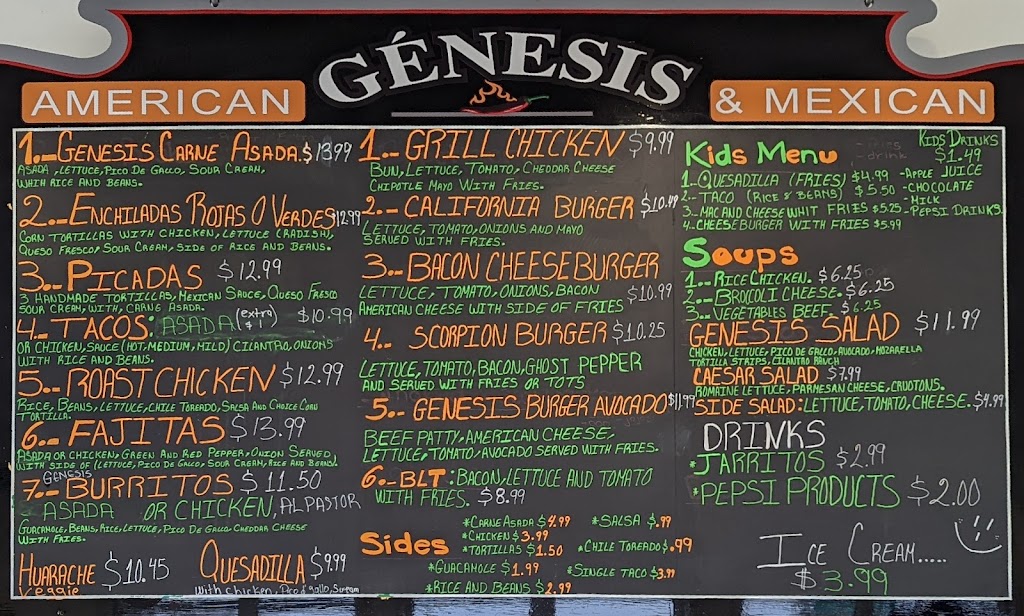 GÉNESIS
AMERICAN
& MEXICAN
1.-GENESIS CARNE ASADA.$13.99
ASADA, LETTUCE, PICO DE GALLO, SOUR CREAM,
WHIH RICE AND BEANS.
2.-ENCHILADAS ROJAS O VERDES$12.99
CORN TORTILLAS WITH CHICKEN, LETTUCE (RADISH),
QUESO FRESCO, SOUR CREAM, SIDE OF RICE AND BEANS.
3.-PICADAS $12.99
3 HANDMADE TORTILLAS, MEXICAN SAUCE, QUESO FRESCO
SOUR CREAM, WITH, CARNE ASADA.
4.-TACOS: ASADA (extra $1) $10.99
OR CHICKEN, SAUCE (HOT, MEDIUM, MILD) CILANTRO, ONIONS
WITH RICE AND BEANS.
5.-ROAST CHICKEN $12.99
RICE, BEANS, LETTUCE, CHILE TOREADO, SALSA AND CHOICE CORN
TORTILLA.
6.-FAJITAS $13.99
ASADA OR CHICKEN, GREEN AND RED PEPPER, ONION SERVED,
WITH SIDE OF (LETTUCE, PICO DE GALLO, SOUR CREAM, RICE AND BEANS).
GENESIS
7.-BURRITOS $11.50
ASADA OR CHICKEN, AL PASTOR
GUACAMOLE, BEANS, RICE, LETTUCE, PICO DE GALLO, CHEDDAR CHEESE
WITH FRIES.
HUARACHE $10.45
Veggie
QUESADILLA $9.99
With chicken, Pico d gallo, S.cream
1.- GRILL CHICKEN $9.99
BUN, LETTUCE, TOMATO, CHEDDAR CHEESE
CHIPOTLE MAYO WITH FRIES.
2.- CALIFORNIA BURGER $10.99
LETTUCE, TOMATO, ONIONS AND MAYO
SERVED WITH FRIES.
3.- BACON CHEESEBURGER
LETTUCE, TOMATO, ONIONS, BACON $10.99
AMERICAN CHEESE WITH SIDE OF FRIES
4.- SCORPION BURGER $10.25
LETTUCE, TOMATO, BACON, GHOST PEPPER
AND SERVED WITH FRIES OR TOTS
5.- GENESIS BURGER AVOCADO $11.99
BEEF PATTY, AMERICAN CHEESE,
LETTUCE, TOMATO, AVOCADO SERVED WITH FRIES.
6.-BLT: BACON, LETTUCE AND TOMATO
WITH FRIES. $8.99
Sides
*CARNE ASADA $4.99
*CHICKEN $3.99
*TORTILLAS $1.50
*GUACAMOLE $1.99
*RICE AND BEANS $2.99
*SALSA $.99
*CHILE TOREADO $.99
*SINGLE TACO $3.99
Kids Menu
1.-QUESADILLA (FRIES) $4.99
2.- TACO (RICE & BEANS) $5.50
3.-MAC AND CHEESE WHIT FRIES $5.25
4.-CHEESEBURGER WITH FRIES $5.99
KIDS DRINKS
$1.49
-APPLE JUICE
-CHOCOLATE
-MILK
-PEPSI DRINKS
Soups
1.-RICE CHICKEN. $6.25
2.-BROCOLI CHEESE. $6.25
3.-VEGETABLES BEEF. $6.25
GENESIS SALAD $11.99
CHICKEN, LETTUCE, PICO DE GALLO, AVOCADO, MOZARELLA
TORTILLA STRIPS, CILANTRO RANCH
CAESAR SALAD $7.99
ROMAINE LETTUCE, PARMESAN CHEESE, CRUOTONS.
SIDE SALAD: LETTUCE, TOMATO, CHEESE. $4.99
DRINKS
*JARRITOS $2.99
*PEPSI PRODUCTS $2.00
ICE CREAM.....
$3.99